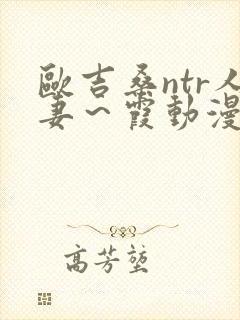 歐吉桑ntr人
妻～霞動漫
高芳堃